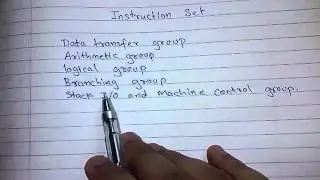 Instruction Set
Data transfer group
Arithmetic group
logical group
Branching group
Stack I/O and Machine Control group.